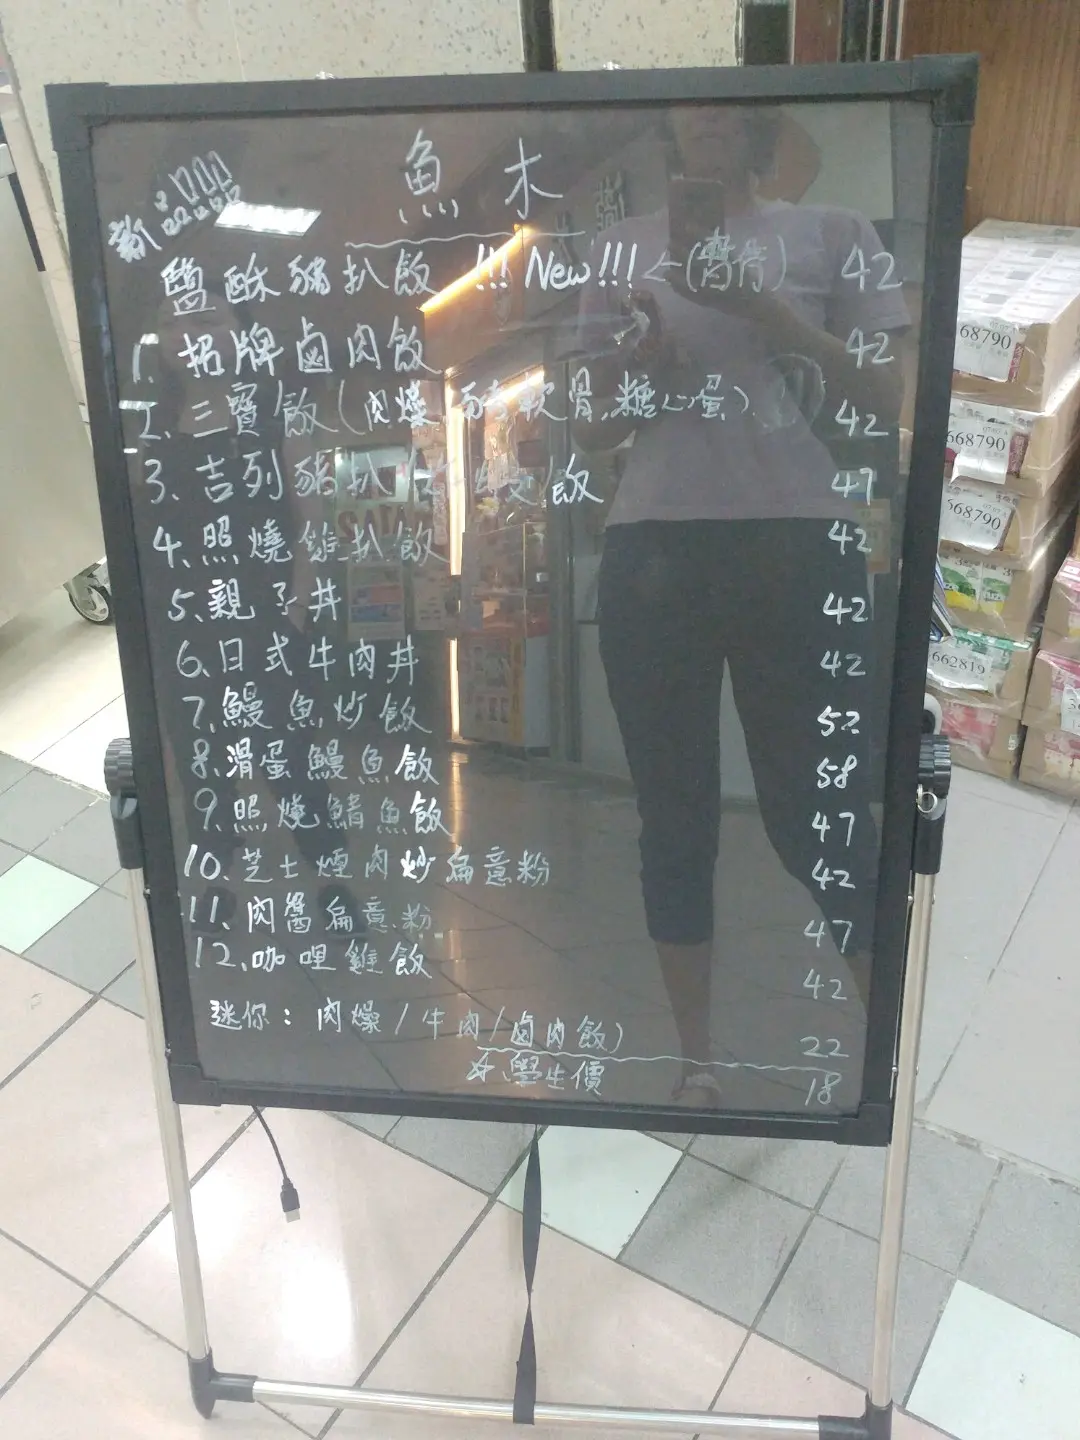 魚木
新品
鹽酥豬扒飯 !!! New!!! ←(暫停) 42
1. 招牌鹵肉飯 42
2. 三寶飯(肉燥、豬軟骨、糖心蛋) 42
3. 吉列豬扒 飯 47
4. 照燒雞扒飯 42
5. 親子丼 42
6. 日式牛肉丼 42
7. 鰻魚炒飯 52
8. 滑蛋鰻魚飯 58
9. 照燒鯖魚飯 47
10. 芝士煙肉炒扁意粉 42
11. 肉醬扁意粉 47
12. 咖哩雞飯 42
迷你：肉燥/牛肉/鹵肉飯) 22
☆學生價 18
68790
668790
668790
662819